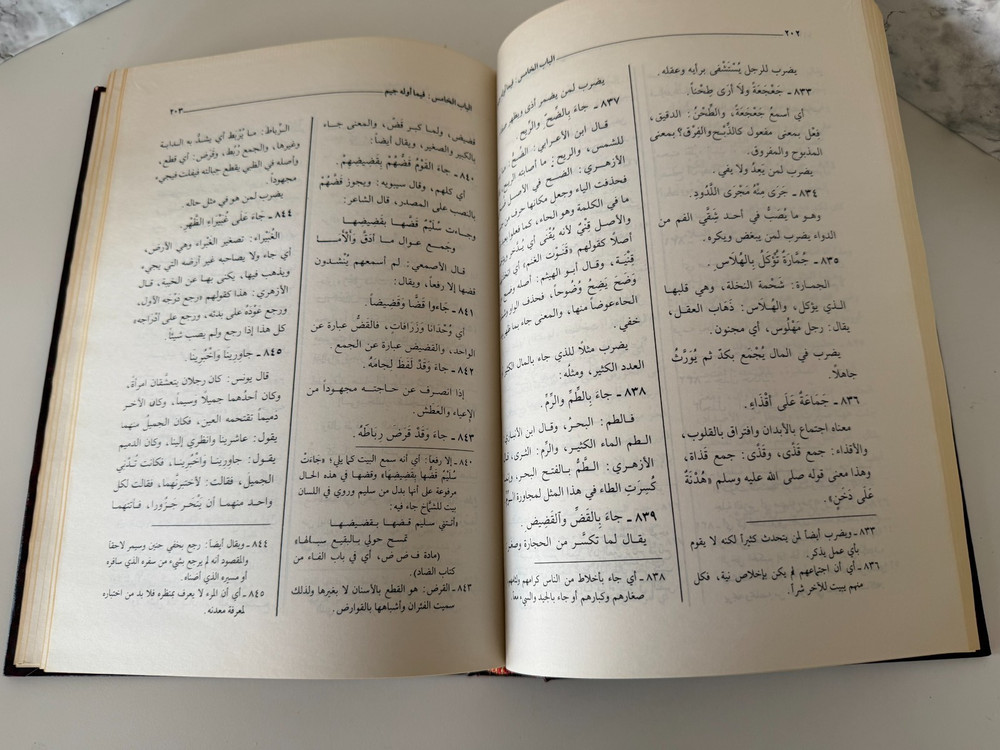 ٢٠٢
الباب الخامس : فيما أوله
يضرب للرجل يُسْتَشْفى برأيه وعقله.
٨٣٣ ـ جَعْجَعَةً ولاَ أرَى طِحْناً.
أي أسمعُ جَعْجَعَةً، والطِّحْنُ: الدقيق،
فِعْل بمعنى مفعول كالذِّبْح والفِرْق؟ بمعنى
المذبوح والمفروق.
يضرب لمن يَعِدُ ولا يفي.
٨٣٤ ـ جَرَى مِنْهُ مَجْرَى اللَّدُودِ.
وهو ما يُصَبُّ في أحد شِقَّي الفم من
الدواء يضرب لمن يبغض ويكره.
٨٣٥ ـ جُمَّارَةٌ تُؤْكَلُ بِالهُلاَسِ.
الجمارة: شَحْمة النخلة، وهي قلبها
الذي يؤكل، والهُلاَس: ذَهَاب العقل،
يقال: رجل مَهْلُوس، أي مجنون.
يضرب في المال يُجْمَع بكدّ ثم يُوَرَّثُ
جاهلاً.
٨٣٦ ـ جَمَاعَةٌ عَلَى أَقْذَاءٍ.
معناه اجتماع بالأبدان وافتراق بالقلوب،
والأقذاء: جمع قَذًى، وقَذًى: جمع قَذاة،
وهذا معنى قوله صلى الله عليه وسلم «هُدْنَةٌ
عَلَى دَخَنٍ».
٨٣٣ ـ ويضرب أيضاً لمن يتحدث كثيراً لكنه لا يقوم
بأي عمل يذكر.
٨٣٦ ـ أي أن اجتماعهم لم يكن بإخلاص نية، فكل
منهم يبيت للآخر شراً.
يضرب لمن يضمر أذى ويظهر
٨٣٧ ـ جَاءَ بِالضِّحِّ والرِّيحِ.
قال ابن الأعرابي: الضِّح:
للشمس، والريح: ما أصابته الريح
الأزهري: الضح في الأصل
فحذفت الياء وجعل مكانها حرف من
ما في الكلمة وهو الحاء، كما فعلوا
والأصل قِنْيٌ لأنه يُقْنَى أي يُدّخر
أصلاً كقولهم «قَنَوت الغنم» أي
قِنْيَة، وقال أبو الهيثم: أصله
وَضَحَ يَضِحُ وُضُوحاً، فحذف الواو
الحاء عوضاً منها، والمعنى جاء بما
خفي.
يضرب مثلاً للذي جاء بالمال الكثير
العدد الكثير، ومثلُه:
٨٣٨ ـ جاءَ بِالطِّمِّ والرِّمِّ.
فالطم: البحر، وقال ابن الأنباري
الطم الماء الكثير، والرِّم: الثرى،
الأزهري: الطَّمُّ بالفتح البحر،
كُسِرَتِ الطاء في هذا المثل لمجاورة
٨٣٩ ـ جاءَ بِالقَضِّ والقَضِيضِ.
يقال لما تكسَّر من الحجارة وصغر
٨٣٨ ـ أي جاء بأخلاط من الناس كرامهم ولئامهم
صغارهم وكبارهم أو جاء بالجيد والسيىء معاً.
الباب الخامس : فيما أوله جيم
٢٠٣
قضيض، ولما كبر قَضّ، والمعنى جاء
بالكبير والصغير، ويقال أيضاً:
٨٤٠ ـ جاءَ القَوْمُ قَضُّهُمْ بِقَضِيضِهِمْ.
أي كلهم، وقال سيبويه: ويجوز قَضَّهُمْ
بالنصب على المصدر، قال الشاعر:
وجاءت سُلَيْمٌ قَضُّها بقَضيضِها
وجَمع عوال ما أدَقَّ وألْأَمَا
قال الأصمعي: لم أسمعهم يُنْشدون
قضها إلا رفعاً، ويقال:
٨٤١ ـ جَاءوا قَضًّا وقَضِيضاً.
أي وُحْدَانا وزَرَافَاتٍ، فالقَضُّ عبارة عن
الواحد، والقضيض عبارة عن الجمع.
٨٤٢ ـ جاءَ وَقَدْ لَفَظَ لِجَامَهُ.
إذا انصرف عن حاجته مجهوداً من
الإعياء والعَطَش.
٨٤٣ ـ جاءَ وَقَدْ قَرَضَ رِبَاطَهُ.
٨٤٠ ـ إلا رفعاً: أي أنه سمع البيت كما يلي؛ «جَاءَتْ
سُلَيْمٌ قَضُّها بِقَضِيضِهَا» وقضها في هذه الحال
مرفوعة على أنها بدل من سليم وروي في اللسان
بيت للشمّاخ جاء فيه:
«أتتني سليم قضها بقضيضها
تمسح حولي بالبقيع سبالها»
(مادة ق ض ض، أي في باب القاف من
كتاب الضاد).
٨٤٣ ـ القرض: هو القطع بالأسنان لا بغيرها ولذلك
سميت الفئران وأشباهها بالقوارض.
الرِّباط: ما يُرْبَط أي يشدُّ به الدابة
وغيرها، والجمع رُبُط، وقَرَض: أي قطع،
وأصله في الظبي يقطع حبالته فيفلت فيجيء
مجهوداً.
يضرب لمن هو في مثل حاله.
٨٤٤ ـ جَاءَ عَلَى غُبَيْراءِ الظَّهْرِ.
الغُبَيْراء: تصغير الغَبْراء وهي الأرض،
أي جاء ولا يصاحبه غير أرضه التي يجيء
ويذهب فيها، يكنى بها عن الخيبة، قال
الأزهري: هذا كقولهم «رجع دَرْجَه الأول،
ورجع عَوْدَه على بدئه، ورجع على أدْراجه»
كل هذا إذا رجع ولم يصب شيئاً.
٨٤٥ ـ جاوِرِينَا وَاخْبُرِينَا.
قال يونس: كان رجلان يتعشَّقان امرأة،
وكان أحدهما جميلاً وسيماً، وكان الآخر
دميماً تقتحمه العين، فكان الجميلُ منهما
يقول: عاشرينا وانظري إلينا، وكان الدميم
يقول: جاورينا واخْبُرينا، فكانت تُدْني
الجميلَ، فقالت: لأختبرنَّهما، فقالت لكل
واحد منهما أن يَنْحَر جَزُورا، فأتتهما
٨٤٤ ـ ويقال أيضاً: رجع بخفي حنين وسيمر لاحقاً
والمقصود أنه لم يرجع بشيء من سفره الذي سافره
أو مسيره الذي أضناه.
٨٤٥ ـ أي أن المرء لا يعرف بمنظره فلا بد من اختباره
لمعرفة معدنه.